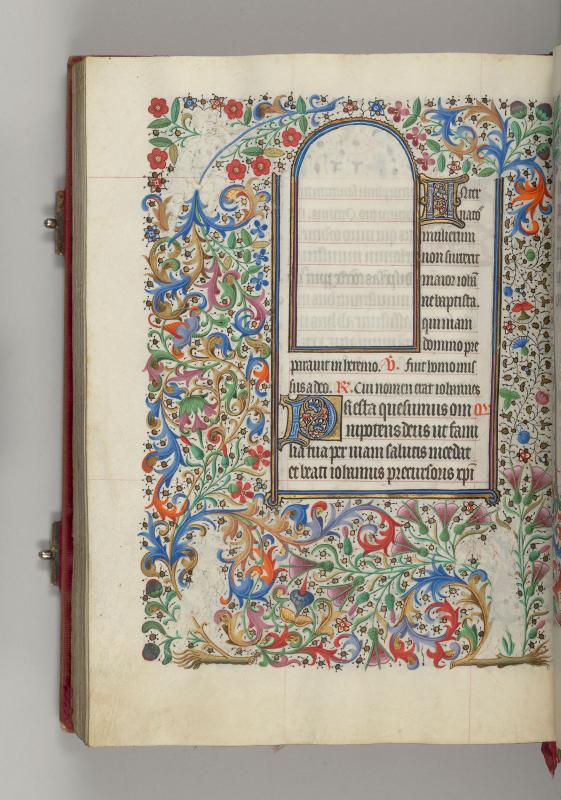 Inter
nato
mulierum
non surrexit
maior ioha
ne baptista.
qui viam
domino pre
parauit in heremo. V. Fuit homo mis
sus a deo. R. Cui nomen erat iohannes
Presta quesumus om or
nipotens deus ut fami
lia tua per viam salutis incedat
et beati iohannis precursoris xpi